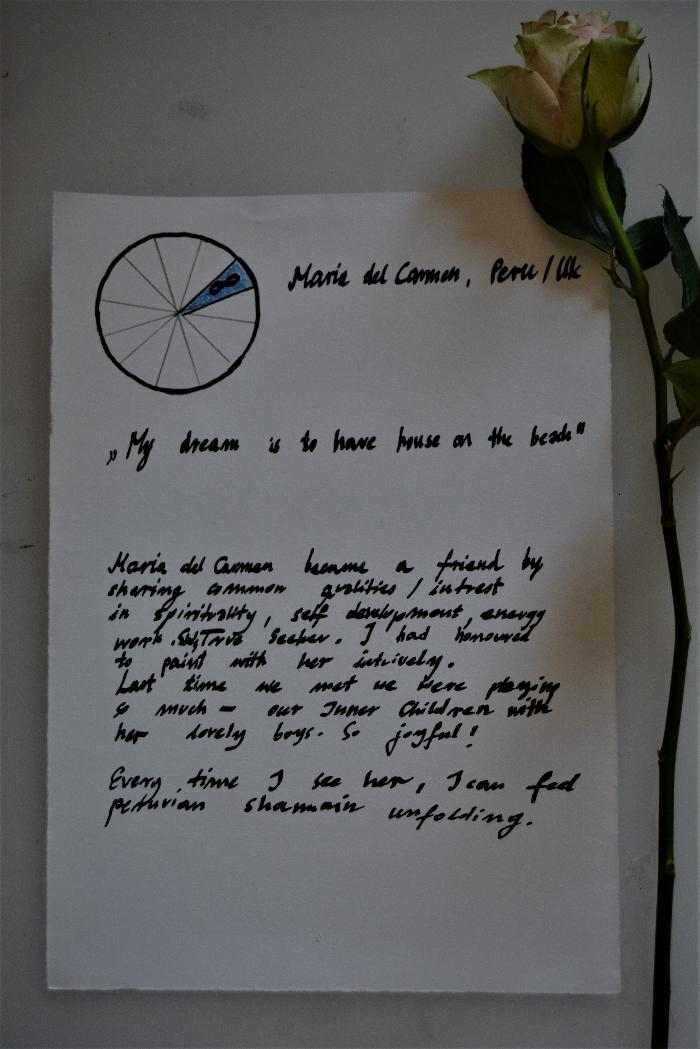 Maria del Carmen, Peru / UK
„My dream is to have house on the beach"
Maria del Carmen became a friend by
sharing common qualities / intrest
in spirituality, self development, energy
work. True Seeker. I had honoured
to paint with her intuively.
Last time we met we were playing
so much - our Inner Children with
her lovely boys. So joyful!
Every time I see her, I can feel
peruvian shamain unfolding.